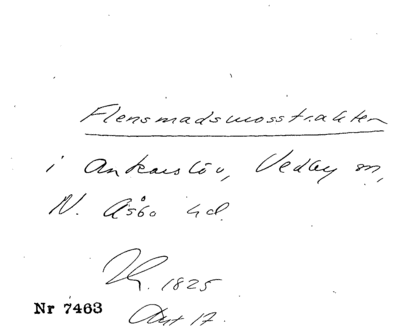 Flensmadsmosstrakten
i Ankarslöv, Vedby sn,
N. Åsbo hd.
1825
Nr 7463
Akt 17.